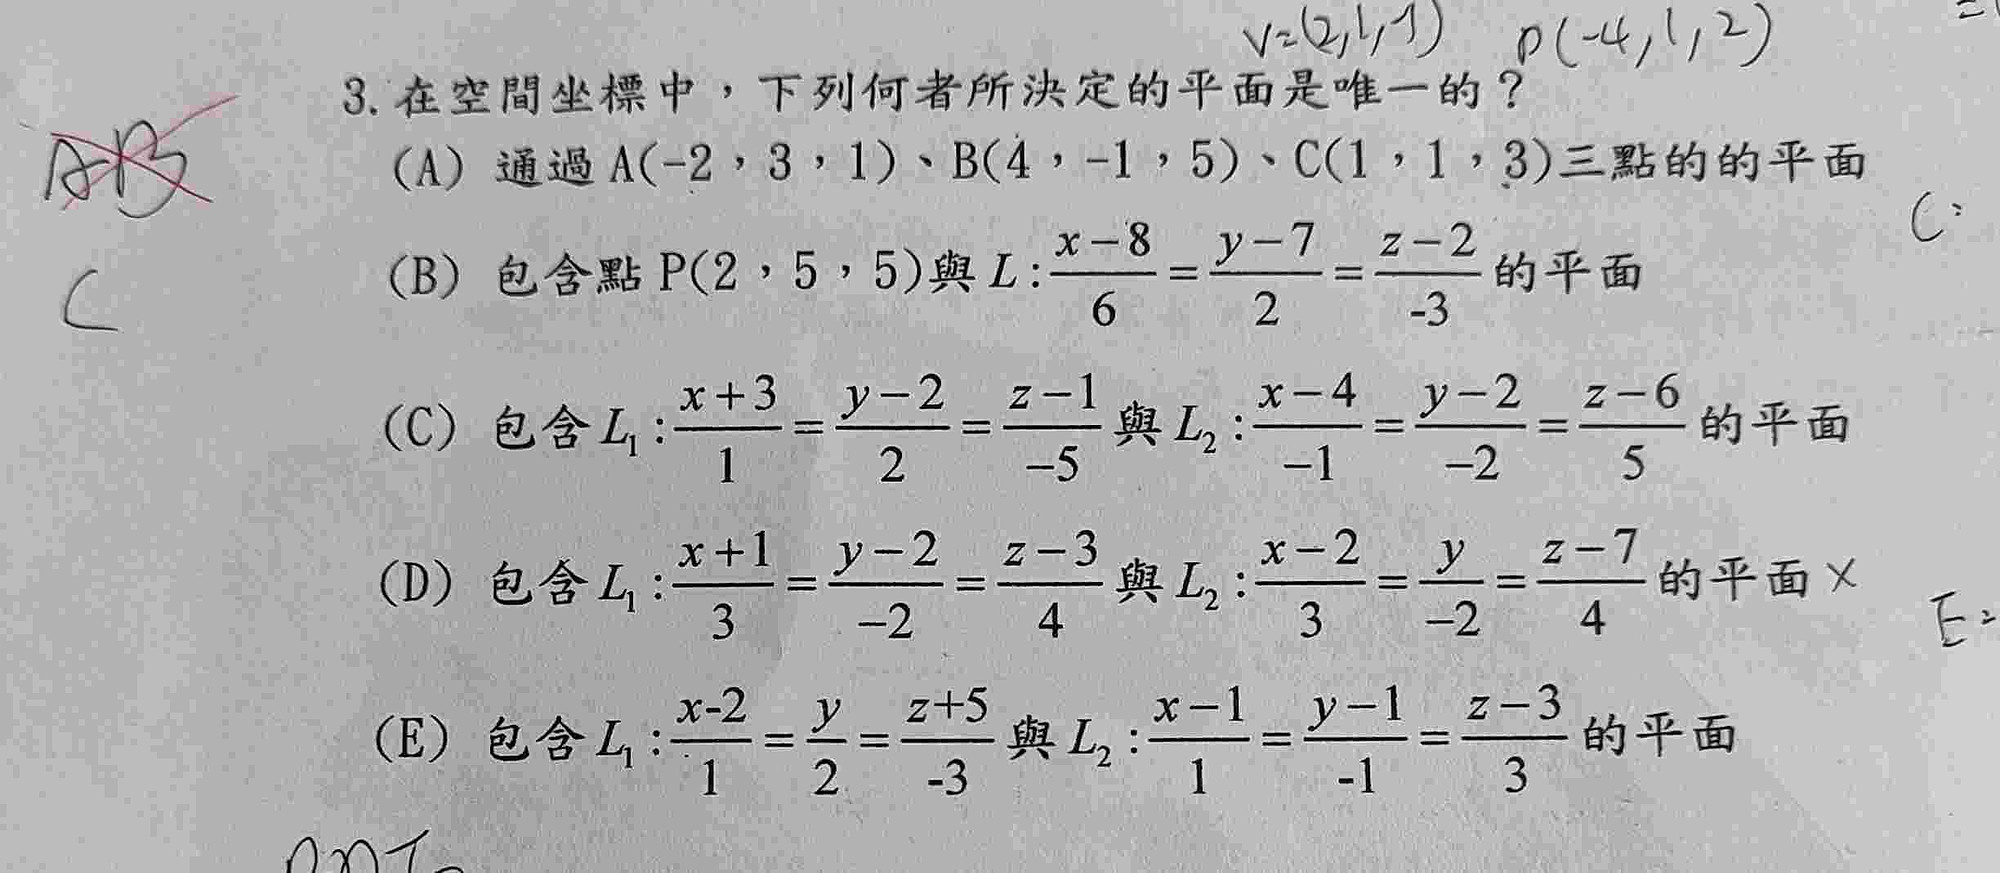 V=(2,1,1) P(-4,1,2)
3. 在空間坐標中，下列何者所決定的平面是唯一的？
AB
(A) 通過 A(-2，3，1)、B(4，-1，5)、C(1，1，3)三點的的平面
C:
(B) 包含點 P(2，5，5)與 L: (x-8)/6 = (y-7)/2 = (z-2)/-3 的平面
C
(C) 包含 L₁: (x+3)/1 = (y-2)/2 = (z-1)/-5 與 L₂: (x-4)/-1 = (y-2)/-2 = (z-6)/5 的平面
(D) 包含 L₁: (x+1)/3 = (y-2)/-2 = (z-3)/4 與 L₂: (x-2)/3 = y/-2 = (z-7)/4 的平面 ×
E=
(E) 包含 L₁: (x-2)/1 = y/2 = (z+5)/-3 與 L₂: (x-1)/1 = (y-1)/-1 = (z-3)/3 的平面